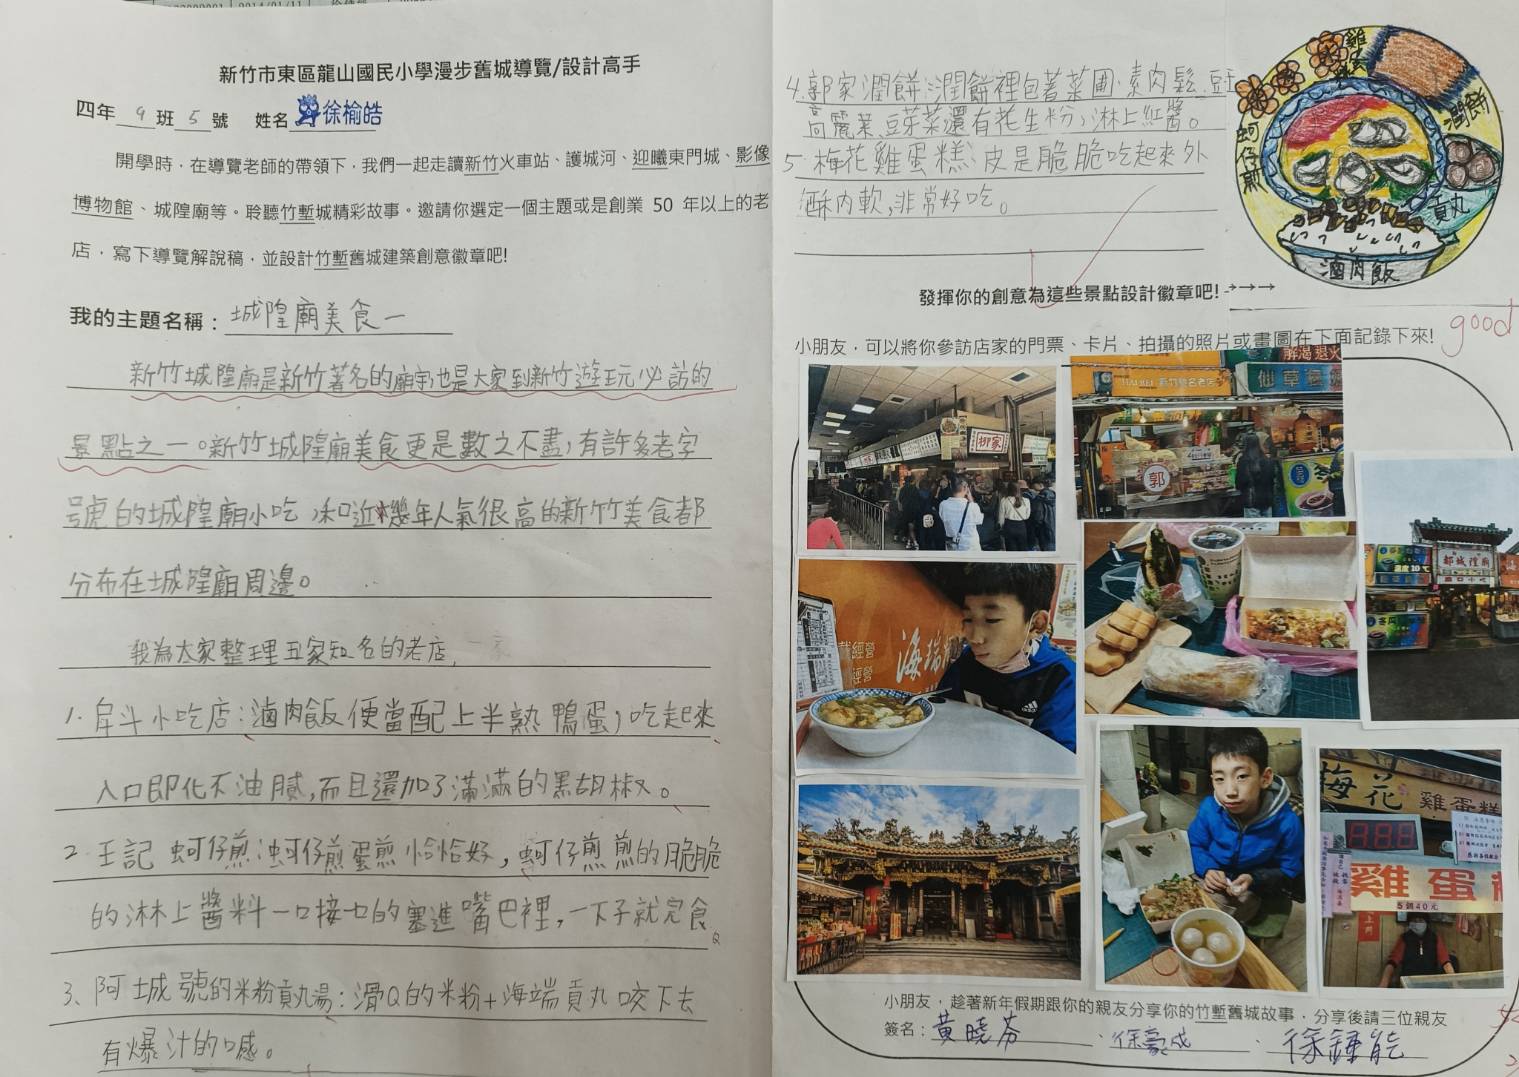 新竹市東區龍山國民小學漫步舊城導覽/設計高手
四年 9 班 5 號 姓名 徐榆皓
開學時，在導覽老師的帶領下，我們一起走讀新竹火車站、護城河、迎曦東門城、影像
博物館、城隍廟等。聆聽竹塹城精彩故事。邀請你選定一個主題或是創業 50 年以上的老
店，寫下導覽解說稿，並設計竹塹舊城建築創意徽章吧!
我的主題名稱：城隍廟美食一
新竹城隍廟是新竹著名的廟宇,也是大家到新竹遊玩必訪的
景點之一。新竹城隍廟美食更是數之不盡，有許多老字
號的城隍廟小吃，和近幾年人氣很高的新竹美食都
分布在城隍廟周邊。
我為大家整理五家知名的老店,
1. 阜斗小吃店：滷肉飯便當配上半熟鴨蛋，吃起來
入口即化不油膩,而且還加了滿滿的黑胡椒。
2. 王記蚵仔煎：蚵仔煎蛋煎恰恰好，蚵仔煎煎的脆脆
的淋上醬料一口接一口的塞進嘴巴裡，一下子就完食。
3、阿城號的米粉貢丸湯：滑Q的米粉+海瑞貢丸咬下去
有爆汁的口感。
4.郭家潤餅：潤餅裡包著菜圃、素肉鬆、豆
高麗菜、豆芽菜還有花生粉，淋上紅醬。
5. 梅花雞蛋糕：皮是脆脆吃起來外
酥內軟,非常好吃。
雞蛋糕
潤餅
蚵仔煎
貢丸
滷肉飯
發揮你的創意為這些景點設計徽章吧! →→→
good
小朋友，可以將你參訪店家的門票、卡片、拍攝的照片或畫圖在下面記錄下來!
柳家
解渴退火
新竹知名老店
仙草
郭
海瑞
都城隍廟
梅花 雞蛋糕
888
雞蛋糕
5個40元
小朋友，趁著新年假期跟你的親友分享你的竹塹舊城故事，分享後請三位親友
簽名：黃曉芬 、徐豪成 、徐鍾能